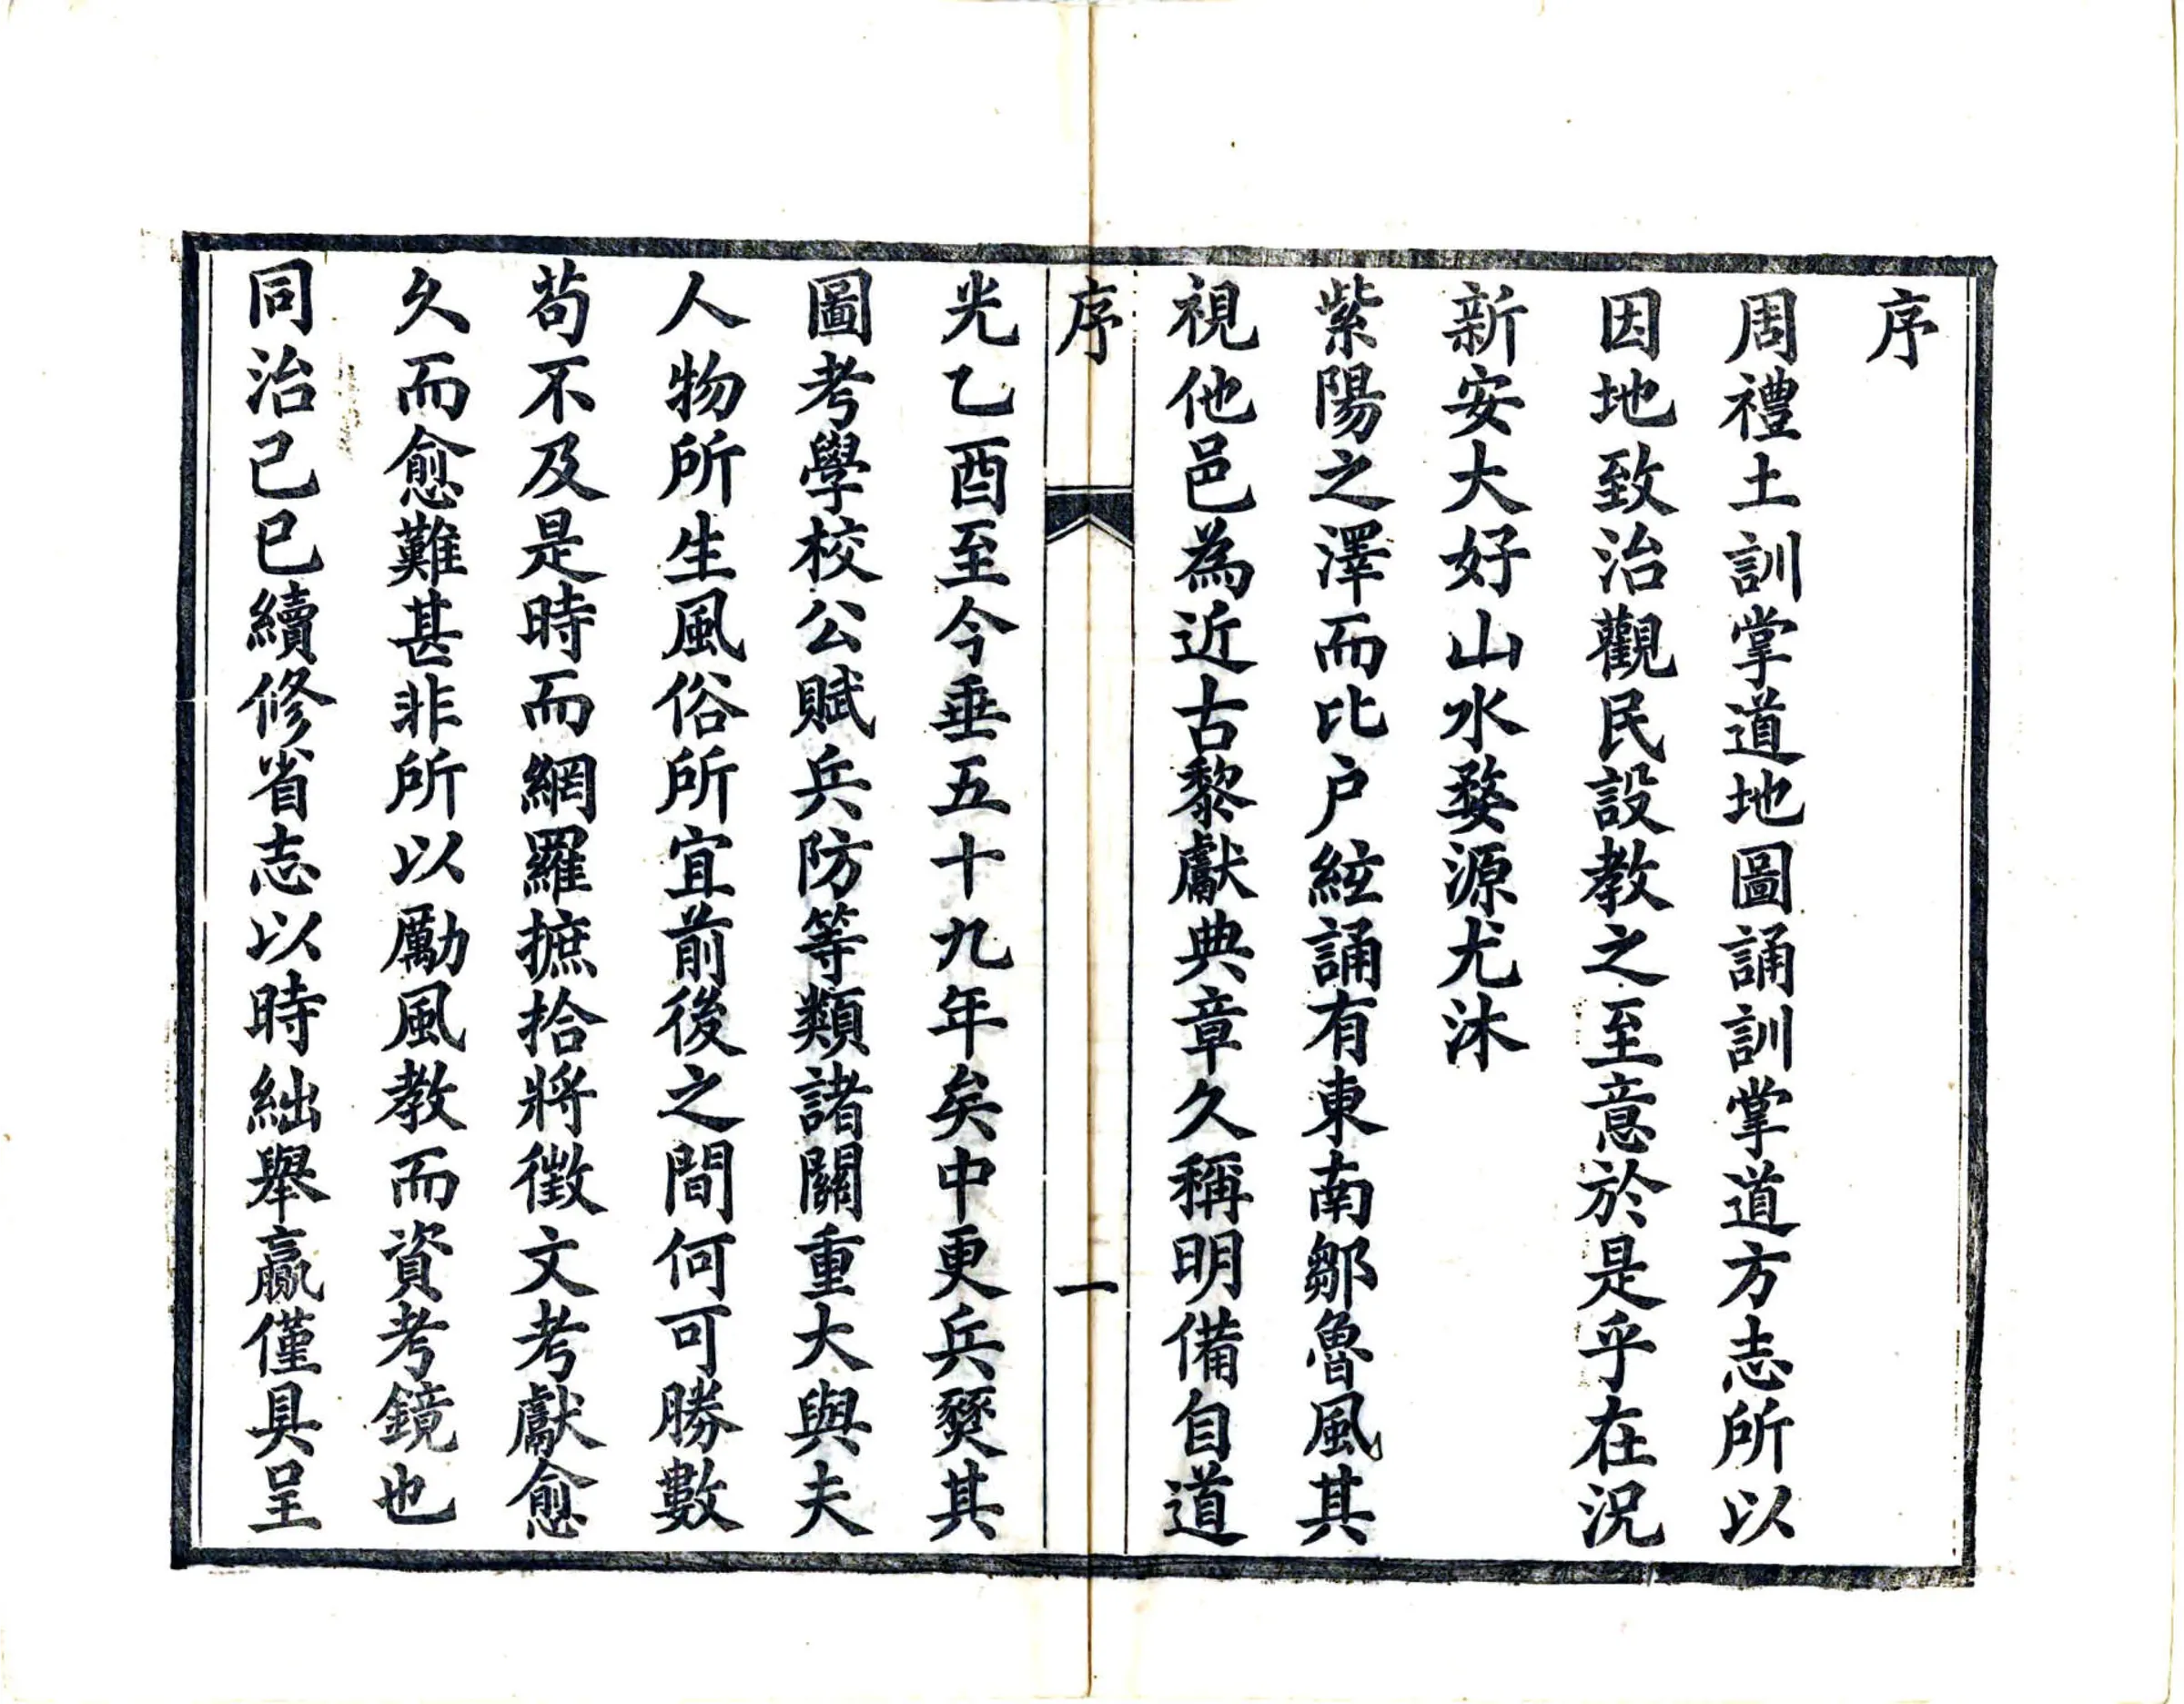 序
周禮土訓掌道地圖誦訓掌道方志所以
因地致治觀民設教之至意於是乎在況
新安大好山水婺源尤沐
紫陽之澤而比户絃誦有東南鄒魯風其
視他邑為近古黎獻典章久稱明備自道
序
一
光乙酉至今垂五十九年矣中更兵燹其
圖考學校公賦兵防等類諸關重大與夫
人物所生風俗所宜前後之間何可勝數
苟不及是時而網羅摭拾將徵文考獻愈
久而愈難甚非所以勵風教而資考鏡也
同治己巳續修省志以時絀舉贏僅具呈